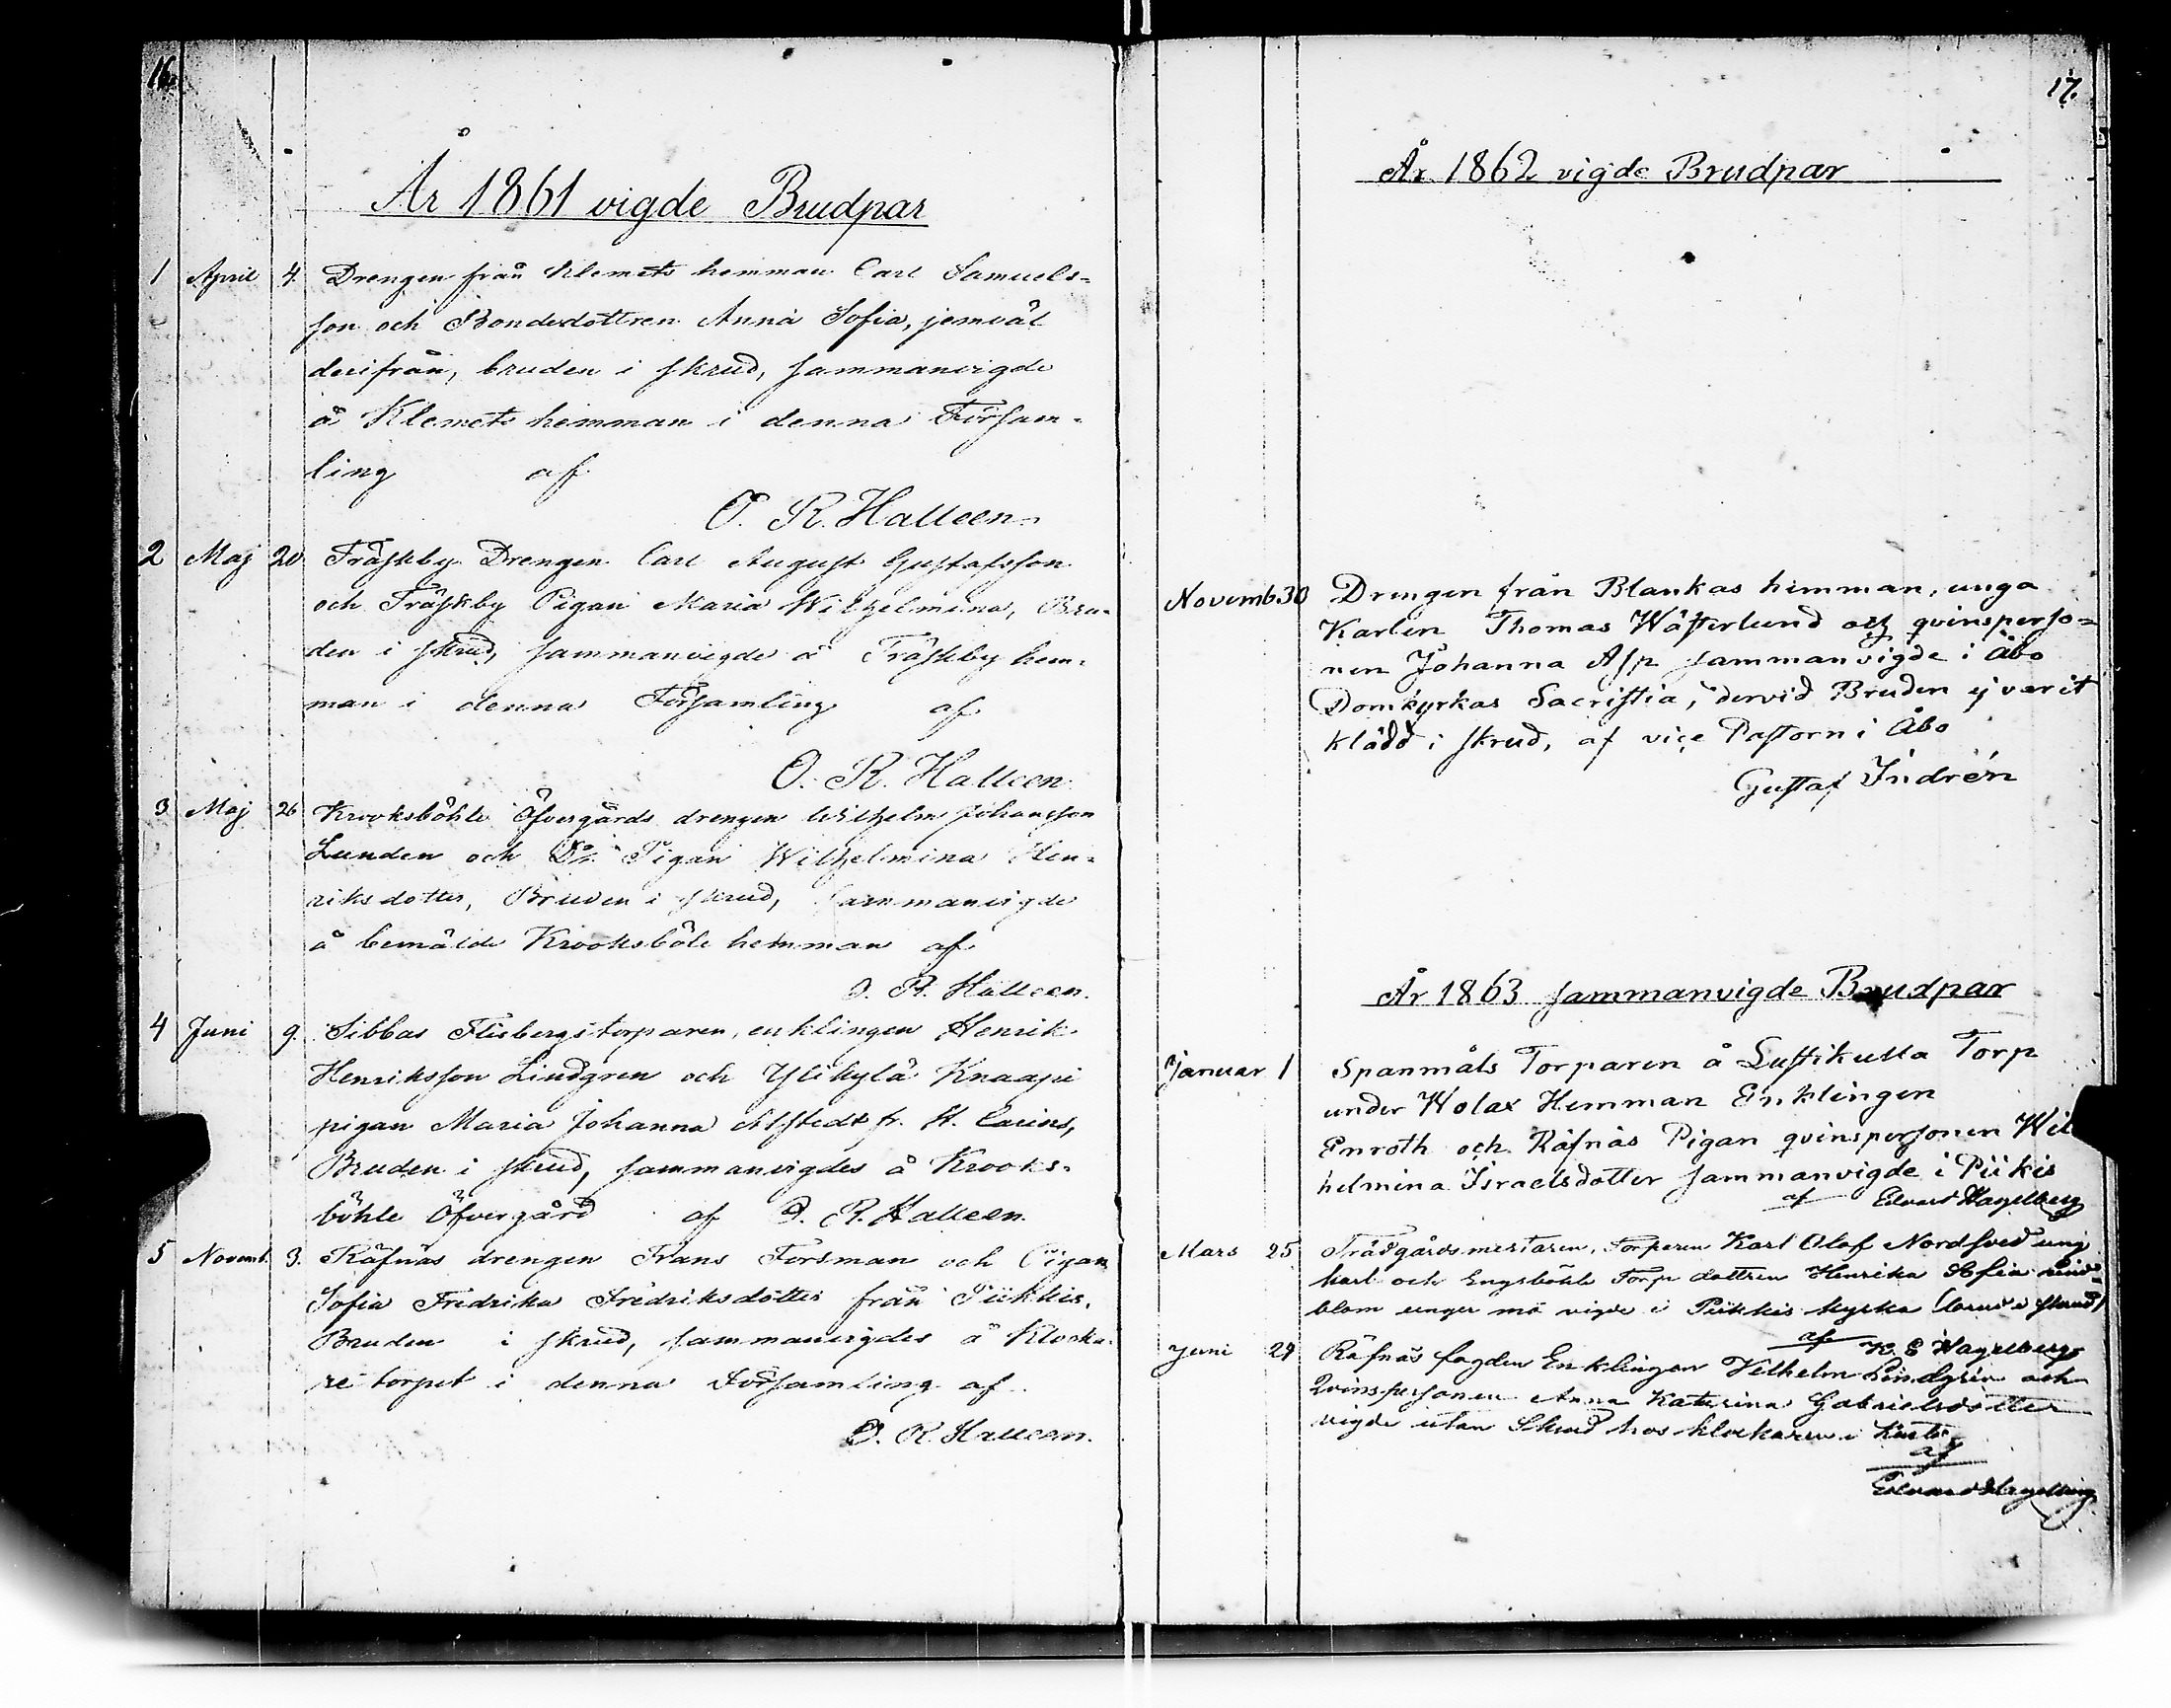 16.
År 1861 vigde Brudpar
1 April 4. Drengen från Klemets hemman Carl Samuels=
son och Bondedottren Anna Sofia, jemväl
derifrån, bruden i skrud, sammanvigde
å Klemets hemman i denna Försam=
ling af
O. R. Halleen.
2 Maj 20 Träskby Drengen Carl August Gustafsson
och Träskby Pigan Maria Wilhelmina, Bru=
den i skrud, sammanvigde å Träskby hem=
man i denna Församling af
O. R. Halleen.
3 Maj 26 Krooksböhle Öfvergårds drengen Wilhelm Johansson
Lunden och Do Pigan Wilhelmina Hen=
riksdotter, Bruden i skrud, sammanvigde
å bemälde Krooksböle hemman af
O. R. Halleen.
4 Juni 9. Sibbas Flisbergstorparen, enklingen Henrik
Henriksson Lindgren och Ylikylä Knaapi
pigan Maria Johanna Alstedt fr. St. Carins,
Bruden i skrud, sammanvigdes å Krooks=
böhle Öfvergård af O. R. Halleen.
5 Novemb. 3. Räfnäs drengen Frans Forsman och Pigan
Sofia Fredrika Fredriksdotter från Piikkis.
Bruden i skrud, sammanvigdes å Klocka=
re torpet i denna Församling af
O. R. Halleen.
17.
År 1862 vigde Brudpar
Novemb. 30 Drengen från Blankas hemman, unga
Karlen Thomas Wästerlund och qvinsperso=
nen Johanna Asp sammanvigde i Åbo
Domkyrkas Sacristia, dervid Bruden ej varit
klädd i skrud, af vice Pastorn i Åbo
Gustaf Indrén
År 1863 sammanvigde Brudpar
Januar 1 Spanmåls Torparen å Lustikulla Torp
under Wolax Hemman Enklingen
Enroth och Räfnäs Pigan qvinspersonen Wil
helmina Israelsdotter sammanvigde i Piikis
af Edvard Hagelberg
Mars 25 Trädgårdsmestaren, Torparen Karl Olof Nordsved ung
karl och Engsböhle Torp dottren Henrika Sofia Lind=
blom unga mö vigde i Piikkis kyrka (brud i skrud)
af K. E Hagelberg
Juni 29 Räfnäs fogden Enklingen Vilhelm Lindgren och
Qvinspersonen Anna Katarina Gabrielsdotter
vigde utan Skrud hos klockaren i
af
Edvard Hagelberg